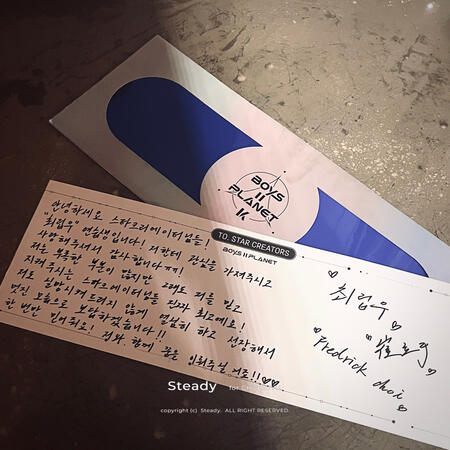 BOYS
II
PLANET
K
TO. STAR CREATORS
BOYS II PLANET
안녕하세요 스타크리에이터님들!
"최립우" 연습생입니다! 저한테 관심을 가져주시고
사랑해주셔서 감사합니다ㅠㅠ
저는 부족한 부분이 많지만 때로 저를 믿고
지켜주시는 스타크리에이터님들 진짜 최고예요!
저도 실망시켜드리지 않게 열심히 하고 성장해서
멋진 모습으로 보답하겠습니다!!
한 번만 믿어줘요! 저와 함께 꿈을 이뤄주실거죠!!♡♡
최립우
Fredrick choi
Steady
copyright (c) Steady. ALL RIGHT RESERVED.